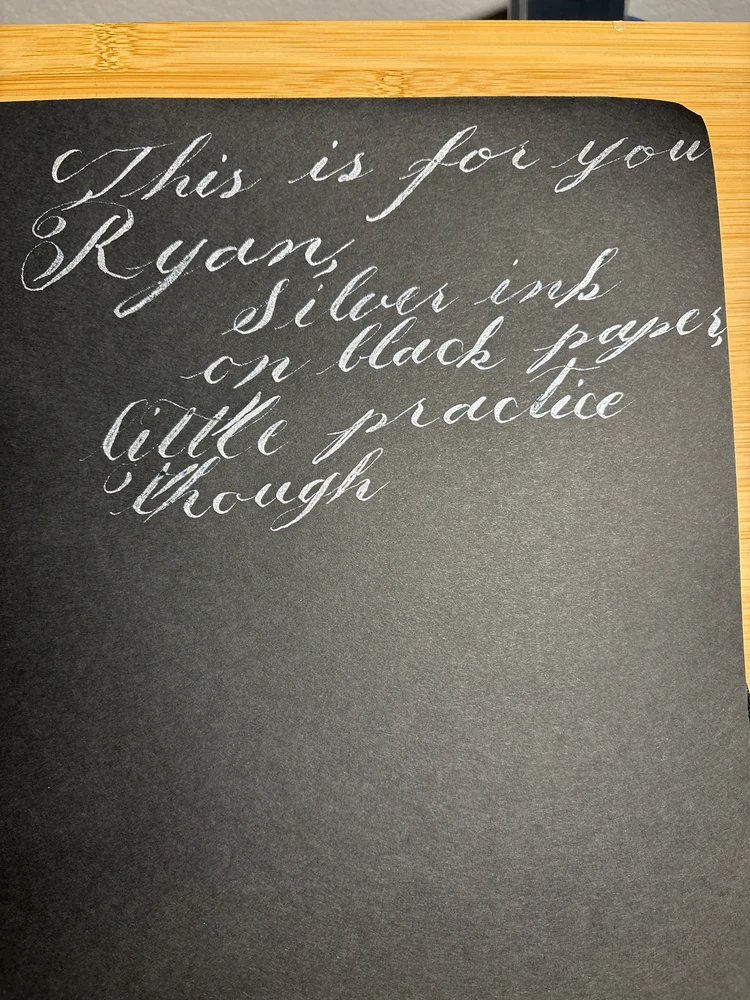 This is for you
Ryan,
Silver ink
on black paper,
little practice
though